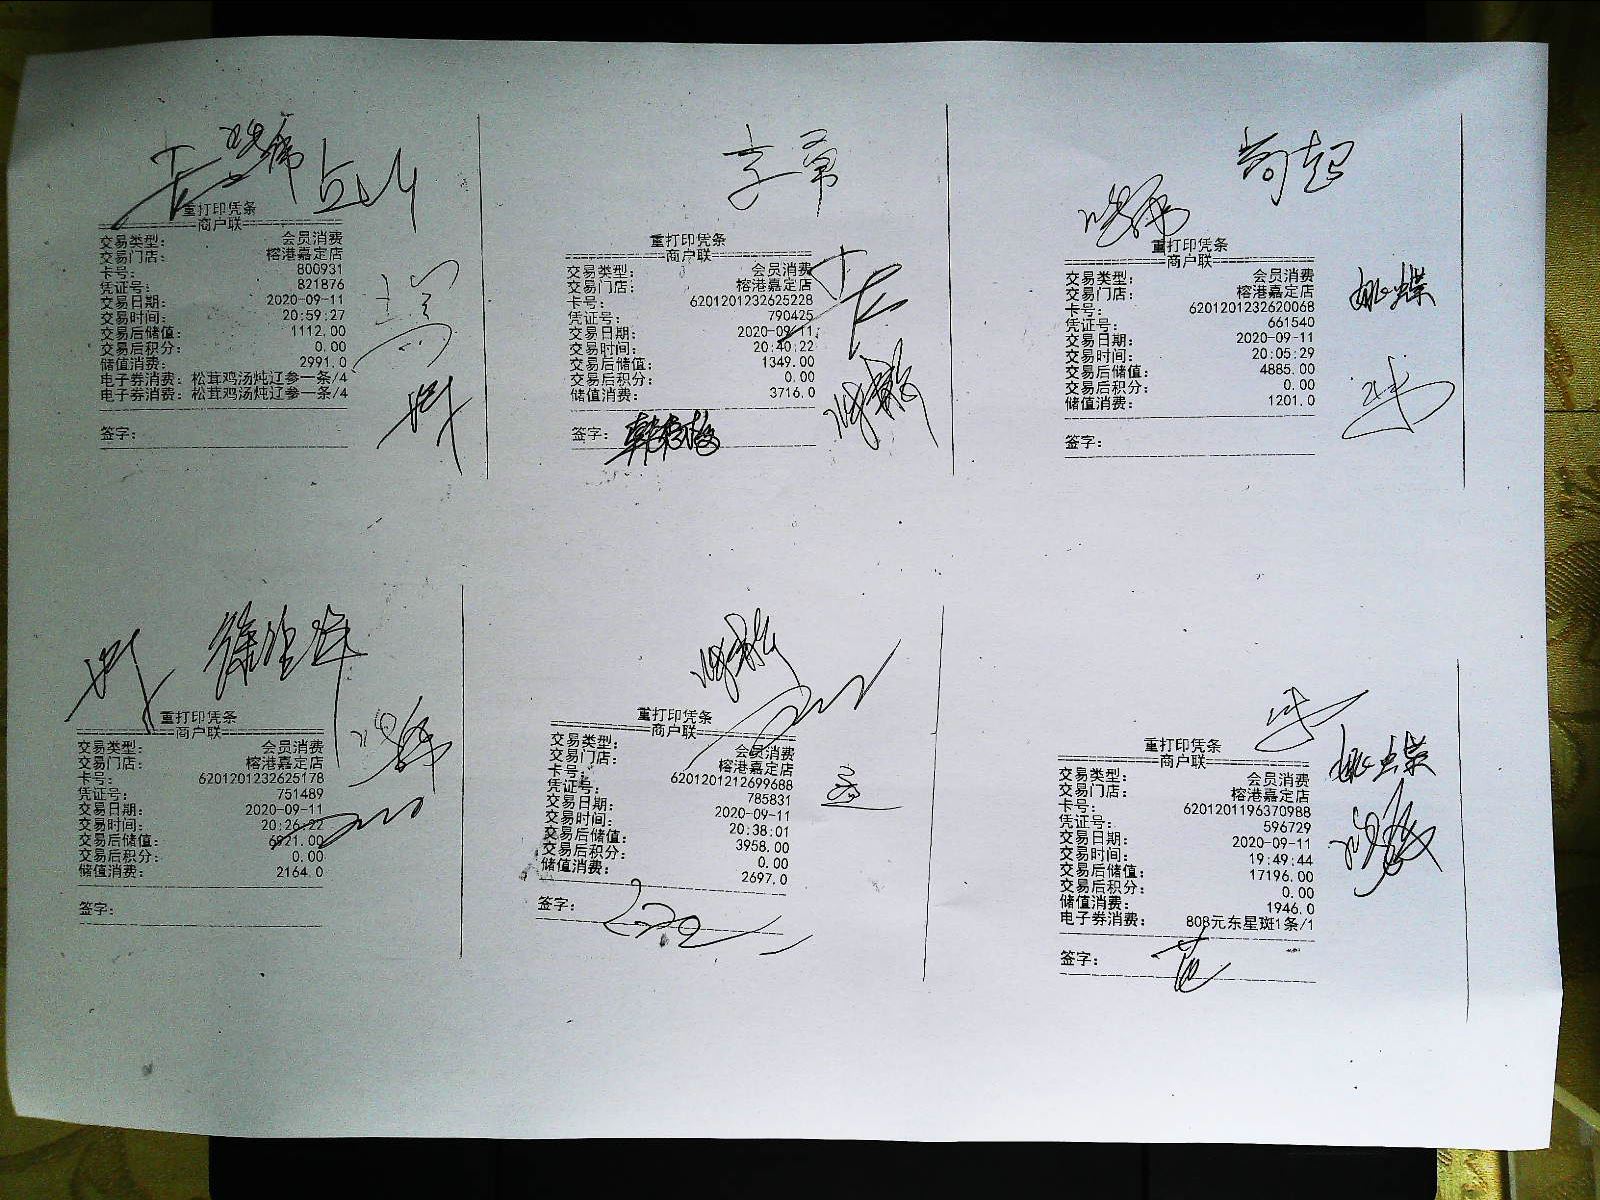 重打印凭条
商户联
交易类型： 会员消费
交易门店： 榕港嘉定店
卡号： 800931
凭证号： 821876
交易日期： 2020-09-11
交易时间： 20:59:27
交易后储值： 1112.00
交易后积分： 0.00
储值消费： 2991.0
电子券消费：松茸鸡汤炖辽参一条/4
电子券消费：松茸鸡汤炖辽参一条/4
签字：
重打印凭条
商户联
交易类型： 会员消费
交易门店： 榕港嘉定店
卡号： 6201201232625228
凭证号： 790425
交易日期： 2020-09-11
交易时间： 20:40:22
交易后储值： 1349.00
交易后积分： 0.00
储值消费： 3716.0
签字：
重打印凭条
商户联
交易类型： 会员消费
交易门店： 榕港嘉定店
卡号： 6201201232620068
凭证号： 661540
交易日期： 2020-09-11
交易时间： 20:05:29
交易后储值： 4885.00
交易后积分： 0.00
储值消费： 1201.0
签字：
重打印凭条
商户联
交易类型： 会员消费
交易门店： 榕港嘉定店
卡号： 6201201232625178
凭证号： 751489
交易日期： 2020-09-11
交易时间： 20:26:22
交易后储值： 6921.00
交易后积分： 0.00
储值消费： 2164.0
签字：
重打印凭条
商户联
交易类型： 会员消费
交易门店： 榕港嘉定店
卡号： 6201201212699688
凭证号： 785831
交易日期： 2020-09-11
交易时间： 20:38:01
交易后储值： 3958.00
交易后积分： 0.00
储值消费： 2697.0
签字：
重打印凭条
商户联
交易类型： 会员消费
交易门店： 榕港嘉定店
卡号： 6201201196370988
凭证号： 596729
交易日期： 2020-09-11
交易时间： 19:49:44
交易后储值： 17196.00
交易后积分： 0.00
储值消费： 1946.0
电子券消费： 808元东星斑1条/1
签字：